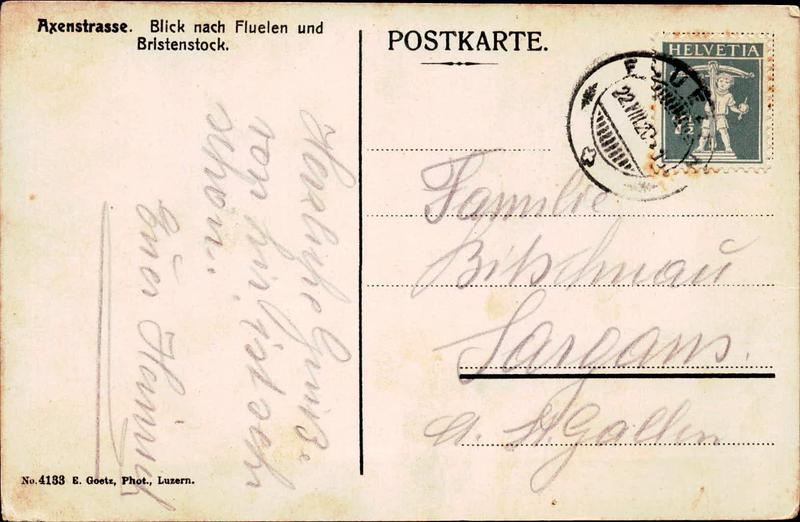 Axenstrasse. Blick nach Fluelen und
Bristenstock.
POSTKARTE.
HELVETIA
22.VIII.2
Herzliche Grüße
von hier, ist sehr
schön.
Euer Heinrich
Familie
Bitschnau
Sargans.
Ct. St. Gallen
No. 4133 E. Goetz, Phot., Luzern.